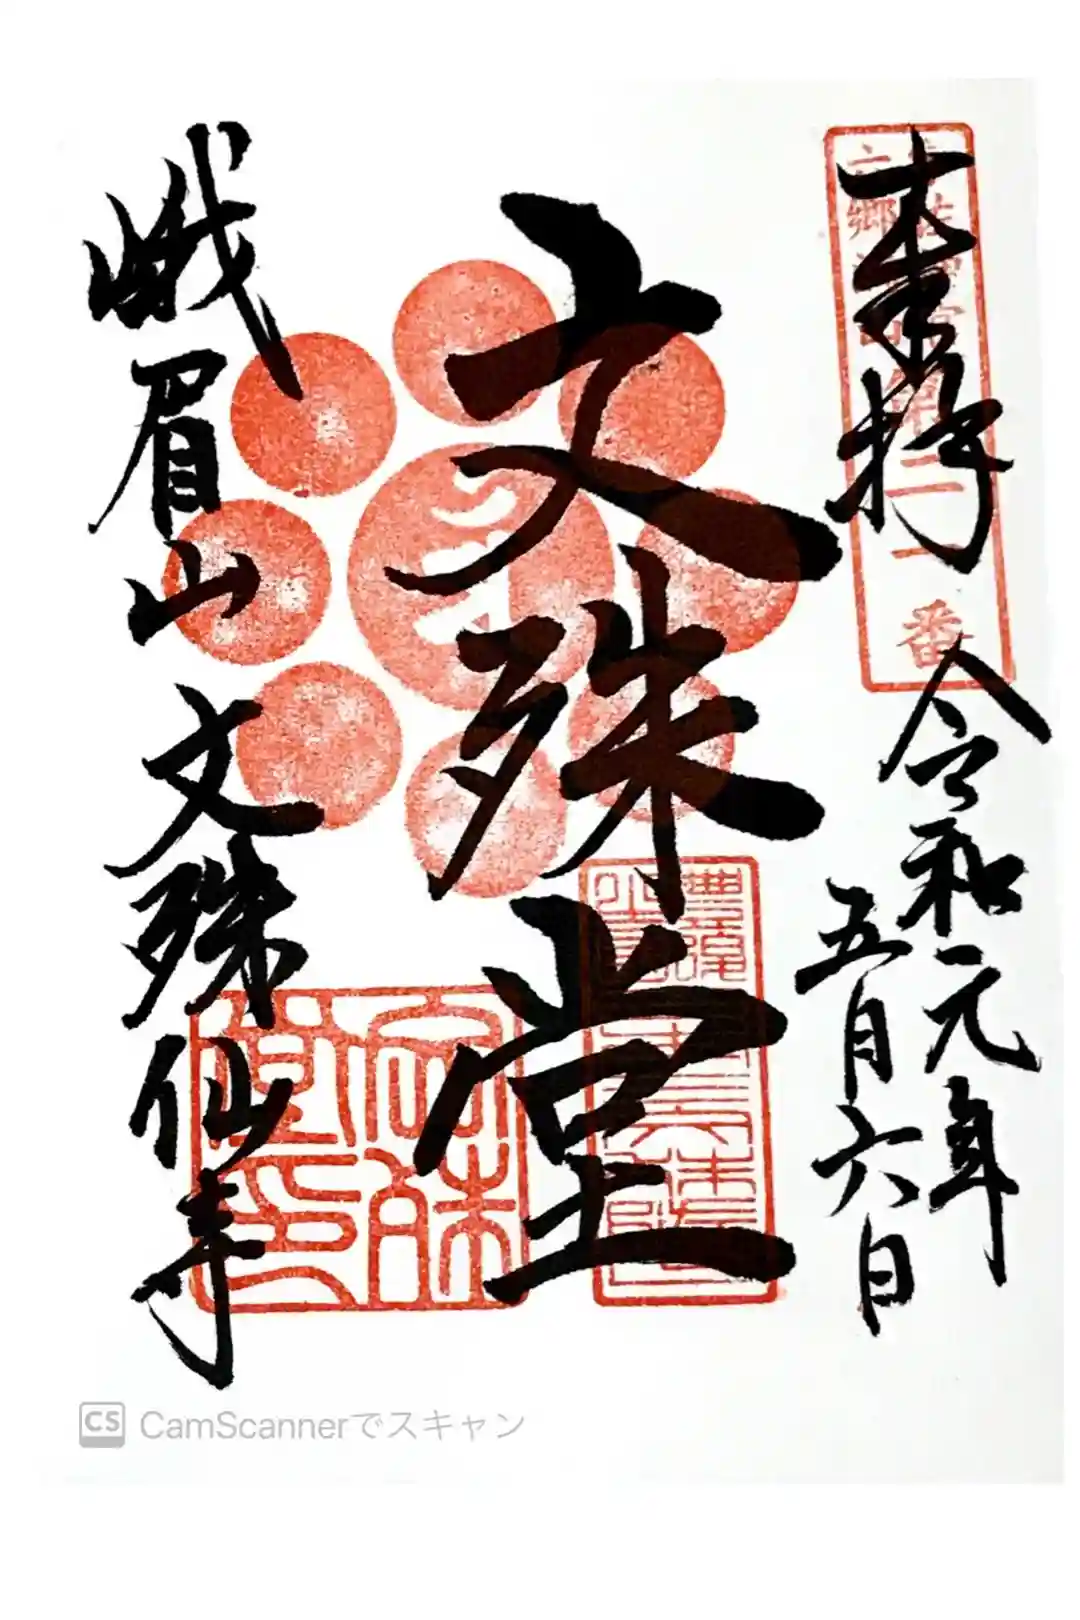 奉拝
令和元年
五月六日
文殊堂
峨眉山文殊仙寺
CamScannerでスキャン